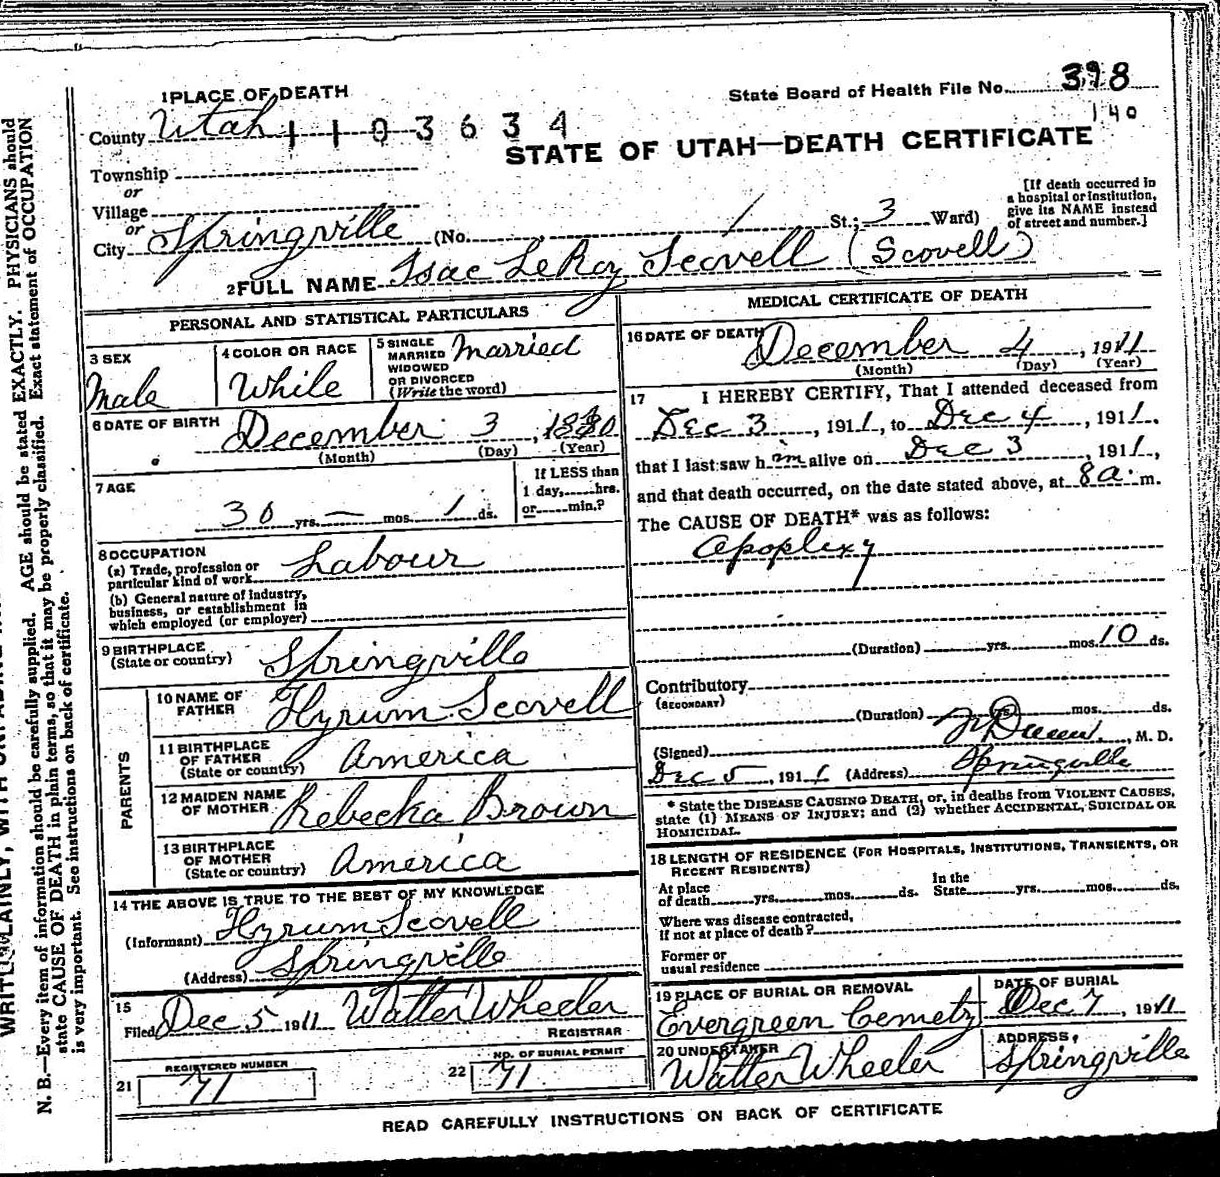 1 PLACE OF DEATH
State Board of Health File No. 398
140
County Utah 1 1 0 3 6 3 4
STATE OF UTAH—DEATH CERTIFICATE
Township
or
Village
or
City Springville (No. St.; 3 Ward)
[If death occurred in
a hospital or institution,
give its NAME instead
of street and number.]
2 FULL NAME Isac LeRoy Scovell (Scovell)
PERSONAL AND STATISTICAL PARTICULARS
3 SEX
Male
4 COLOR OR RACE
White
5 SINGLE
MARRIED
WIDOWED
OR DIVORCED
(Write the word)
Married
6 DATE OF BIRTH
December 3, 1880
(Month) (Day) (Year)
7 AGE
30 yrs. — mos. 1 ds.
If LESS than
1 day, hrs.
or min.?
8 OCCUPATION
(a) Trade, profession or
particular kind of work
Labour
(b) General nature of industry,
business, or establishment in
which employed (or employer)
9 BIRTHPLACE
(State or country)
Springville
PARENTS
10 NAME OF
FATHER
Hyrum Scovell
11 BIRTHPLACE
OF FATHER
(State or country)
America
12 MAIDEN NAME
OF MOTHER
Rebecka Brown
13 BIRTHPLACE
OF MOTHER
(State or country)
America
14 THE ABOVE IS TRUE TO THE BEST OF MY KNOWLEDGE
(Informant) Hyrum Scovell
(Address) Springville
15
Filed Dec 5 1911 Walter Wheeler
REGISTRAR
REGISTERED NUMBER
21 71
NO. OF BURIAL PERMIT
22 71
MEDICAL CERTIFICATE OF DEATH
16 DATE OF DEATH
December 4, 1911
(Month) (Day) (Year)
17 I HEREBY CERTIFY, That I attended deceased from
Dec 3, 1911, to Dec 4, 1911,
that I last saw him alive on Dec 3, 1911,
and that death occurred, on the date stated above, at 8 a. m.
The CAUSE OF DEATH* was as follows:
Apoplexy
(Duration) yrs. mos. 10 ds.
Contributory
(SECONDARY)
(Duration) yrs. mos. ds.
(Signed) , M. D.
Dec 5, 1911 (Address) Springville
* State the DISEASE CAUSING DEATH, or, in deaths from VIOLENT CAUSES,
state (1) MEANS OF INJURY; and (2) whether ACCIDENTAL, SUICIDAL OR
HOMICIDAL.
18 LENGTH OF RESIDENCE (FOR HOSPITALS, INSTITUTIONS, TRANSIENTS, OR
RECENT RESIDENTS)
At place
of death yrs. mos. ds.
In the
State yrs. mos. ds.
Where was disease contracted,
if not at place of death?
Former or
usual residence
19 PLACE OF BURIAL OR REMOVAL
Evergreen Cemety
DATE OF BURIAL
Dec 7, 1911
20 UNDERTAKER
Walter Wheeler
ADDRESS
Springville
READ CAREFULLY INSTRUCTIONS ON BACK OF CERTIFICATE
WRITE PLAINLY, WITH
N. B.—Every item of information should be carefully supplied. AGE should be stated EXACTLY. PHYSICIANS should
state CAUSE OF DEATH in plain terms, so that it may be properly classified. Exact statement of OCCUPATION
is very important. See instructions on back of certificate.